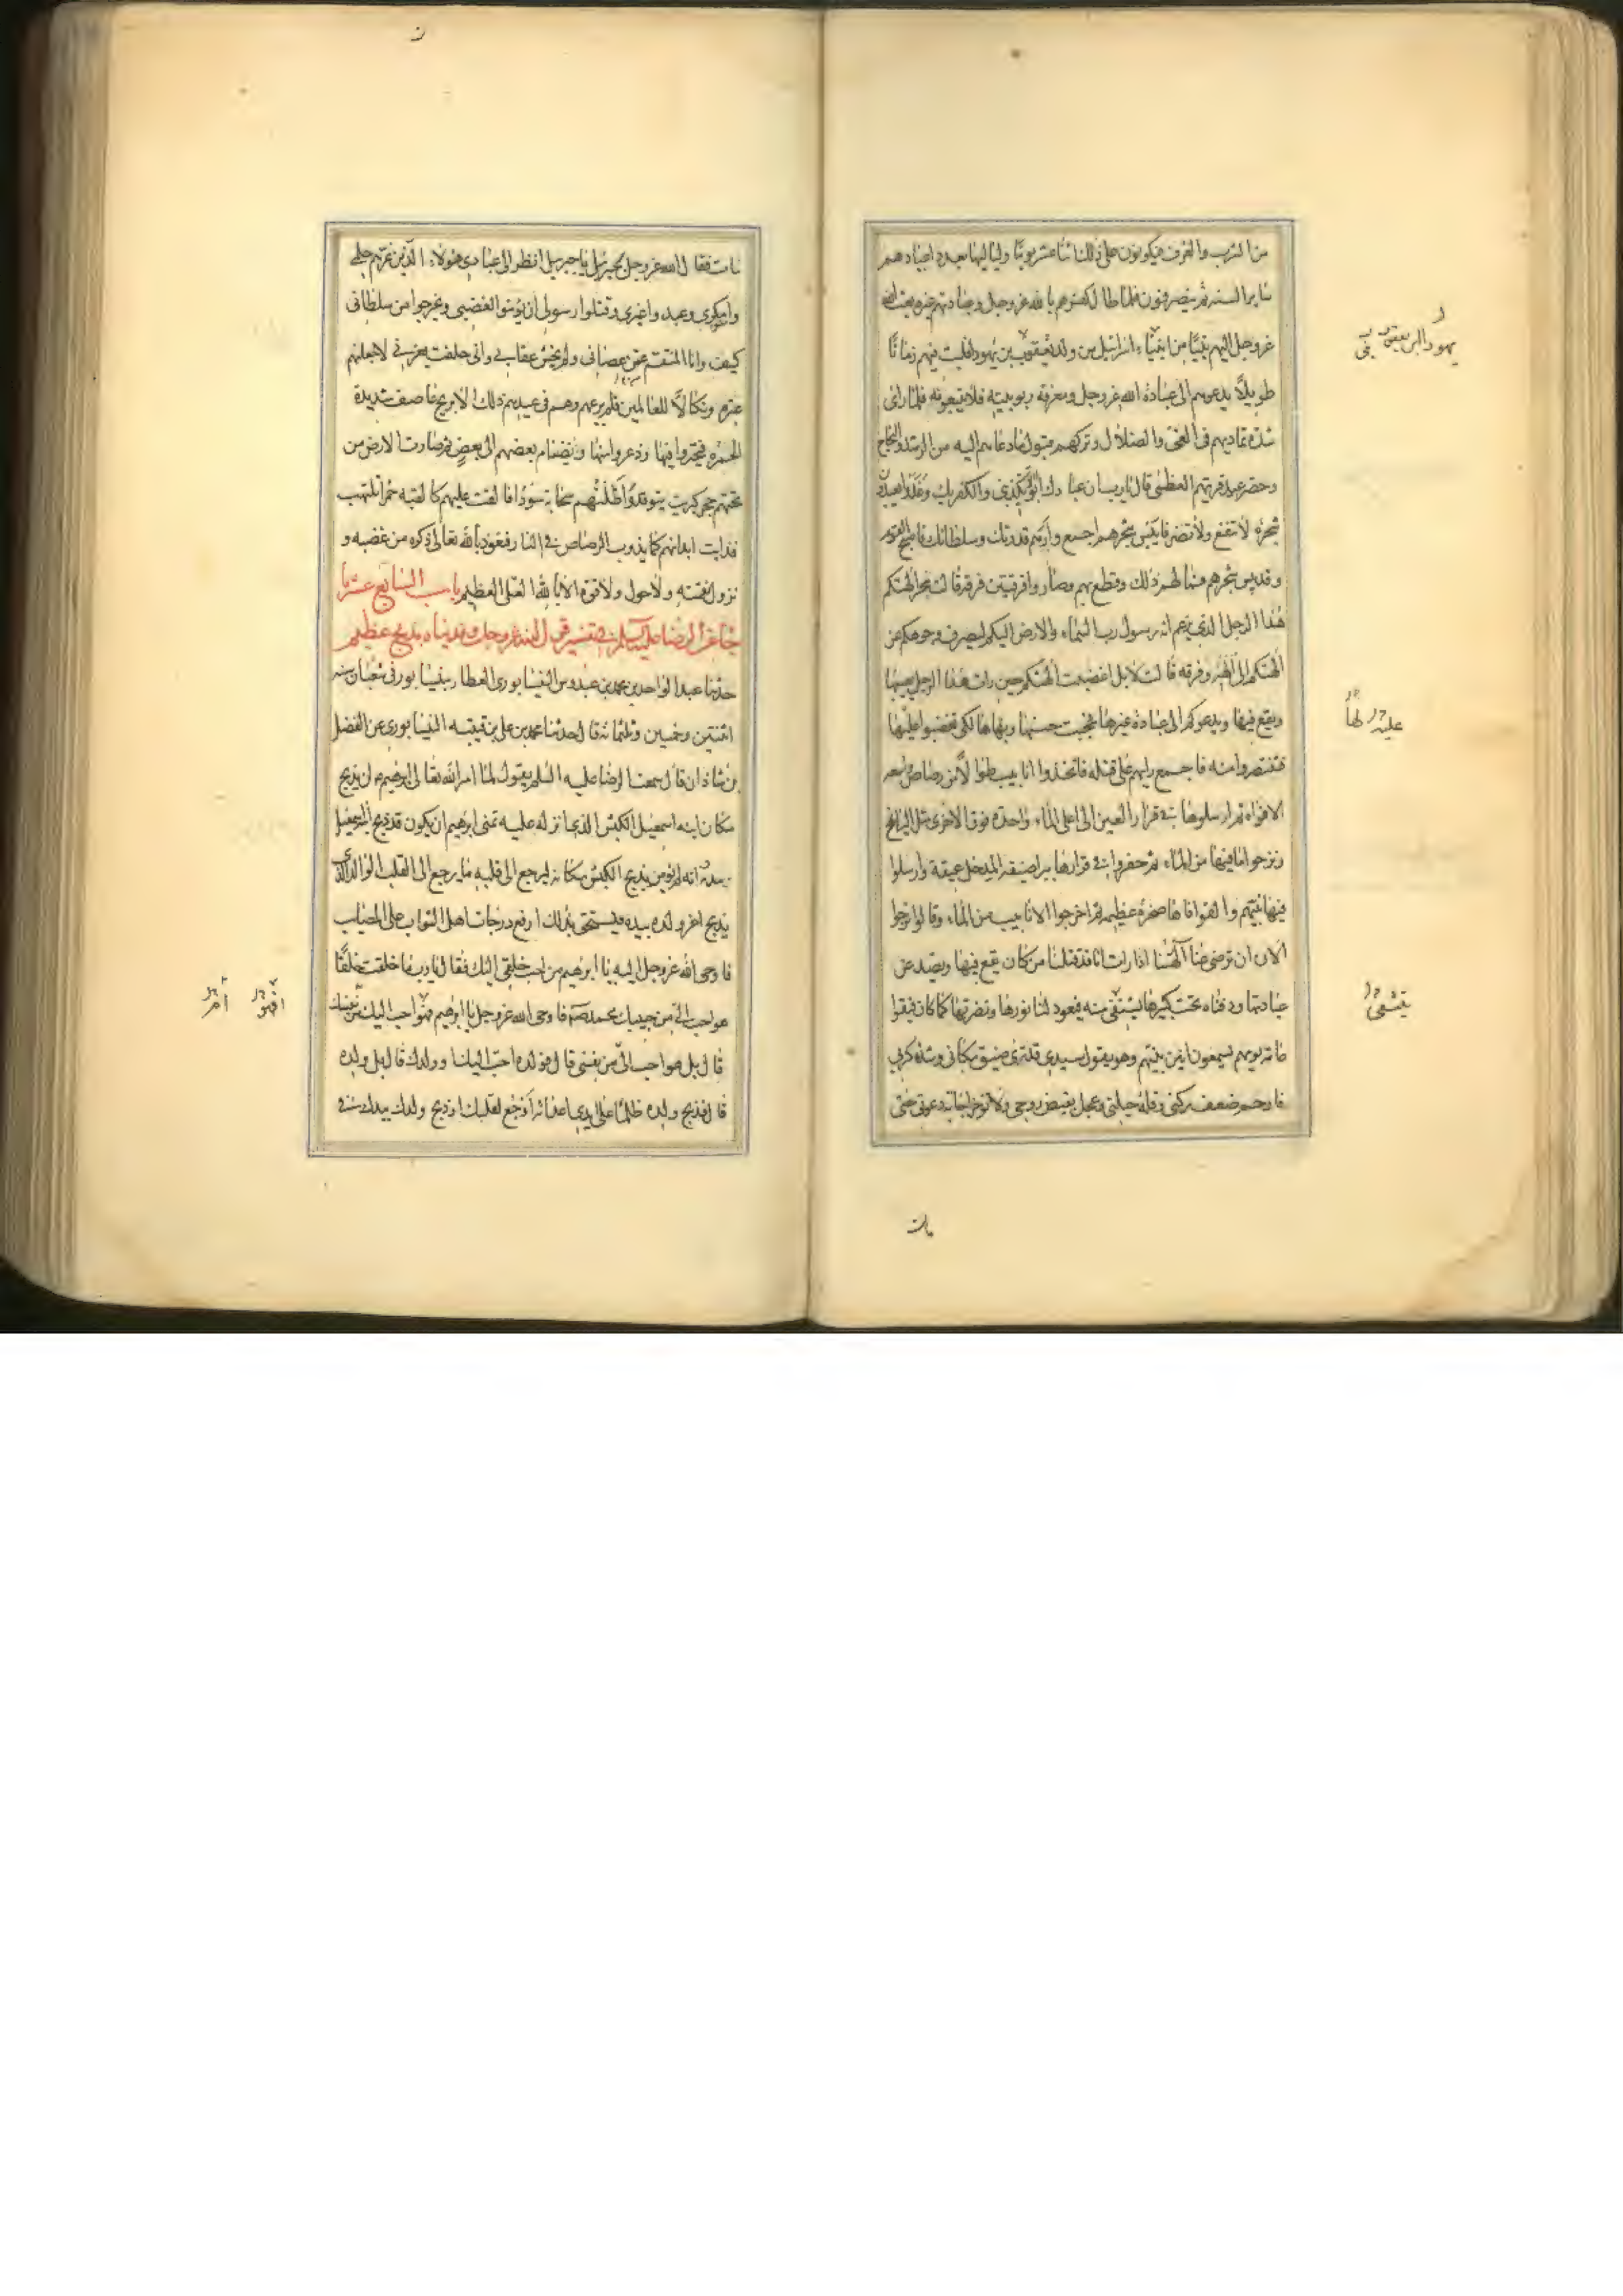 من الشرب والعزف فيكونون على ذلك اثنا عشر يومًا ولياليها بعدد اعيادهم
سائر السنه ثم ينصرفون فلما طال كفرهم بالله عزوجل وعبادتهم غيره بعث الله
عزوجل اليهم نبيًّا من انبياء اسرائيل من ولد يعقوب بن يهودا فلبث فيهم زمانًا
طويلًا يدعوهم الى عبادة الله عزوجل ومعرفة ربوبيته فلا يتبعونه فلما رأى
شدة تماديهم فى الغى والضلال وتركهم قبول ما دعاهم اليه من الرشد والنجاح
وحضر عيد قريتهم العظمى قال يا رب ان عبادك ابوا الا تكذيبى والكفر بك وغدوا يعبدون
شجرة لا تنفع ولا تضر فايبس شجرهم اجمع وارهم قدرتك وسلطانك فاصبح القوم
وقد يبس شجرهم فهالهم ذلك وقطع بهم وصاروا فرقتين فرقة قالت سحر الهتكم
هذا الرجل الذى يزعم انه رسول رب السماء والارض اليكم ليصرف وجوهكم عن
الهتكم الى الهه وفرقه قالت لا بل غضبت الهتكم حين رات هذا الرجل يعيبها
ويقع فيها ويدعوكم الى عبادة غيرها فحجبت حسنها وبهاءها لكى تغضبوا عليها
فتنتصروا منه فاجمع رايهم على قتله فاتخذوا انابيب طوالًا من رصاص واسعه
الافواه ثم ارسلوها فى قرار العين الى اعلى الماء واحدة فوق الاخرى مثل البرابخ
ونزحوا ما فيها من الماء ثم حفروا فى قرارها بئرا ضيقه المدخل عميقة وارسلوا
فيها نبيهم والقموا فاها صخرة عظيمه ثم اخرجوا الانابيب من الماء وقالوا نرجوا
الان ان ترضى عنا آلهتنا اذا رات انا قد قتلنا من كان يقع فيها ويصد عن
عبادتها ودفناه تحت كبيرها يتشفى منه فيعود لنا نورها ونضرتها كما كان فبقوا
عامة يومهم يسمعون انين نبيهم وهو يقول سيدى قد ترى ضيق مكانى وشدة كربى
فارحم ضعف ركنى وقلة حيلتى وعجل بقبض روحى ولا تؤخر اجابة دعوتى حتى
مات
مات فقال الله عزوجل لجبرئيل يا جبرئيل انظر الى عبادى هؤلاء الذين غرهم حلمى
وامنوا مكرى وعبدوا غيرى وقتلوا رسولى ان يقوموا لغضبى ويخرجوا من سلطانى
كيف وانا المنتقم ممن عصانى ولم يخش عقابى وانى حلفت بعزتى لاجعلنهم
عبرة ونكالًا للعالمين فلم يرعهم وهم فى عيدهم ذلك الا بريح عاصف شديدة
الحمره فتحيروا فيها وذعروا منها وتضام بعضهم الى بعض ثم صارت الارض من
تحتهم حجر كبريت يتوقد واظلتهم سحابة سودا فالقت عليهم كالقبه جمرا تلتهب
فذابت ابدانهم كما يذوب الرصاص فى النار فنعوذ بالله تعالى ذكره من غضبه و
نزول نقمته ولاحول ولاقوة الا بالله العلى العظيم باب السابع عشر ما
جاء عن الرضا عليه السلم فى تفسير قول الله عزوجل وفديناه بذبح عظيم
حدثنا عبدالواحد بن محمد بن عبدوس النيسابورى العطار بنيسابور فى شعبان سنه
اثنتين وخمسين وثلثمائة قال حدثنا محمد بن على بن قتيبه النيسابورى عن الفضل
بن شاذان قال سمعت الرضا عليه السلم يقول لما امر الله تعالى ابرهيم ان يذبح
مكان ابنه اسمعيل الكبش الذى انزله عليه تمنى ابرهيم ان يكون قد ذبح اسمعيل
بيده وانه لم يؤمر بذبح الكبش مكانه ليرجع الى قلبه ما يرجع الى القلب الوالد الذى
يذبح اعز ولده بيده فيستحق بذلك ارفع درجات اهل الثواب على المصايب
فاوحى الله عزوجل اليه يا ابرهيم من احب خلقى اليك فقال يا رب ما خلقت خلقًا
هو احب الى من حبيبك محمد فاوحى الله عزوجل يا ابرهيم هو احب اليك من نفسك
قال بل هو احب الى من نفسى قال فولده احب اليك او ولدك قال بل ولده
قال فذبح ولده ظلما على ايدى اعدائه اوجع لقلبك او ذبح ولدك بيدك فى